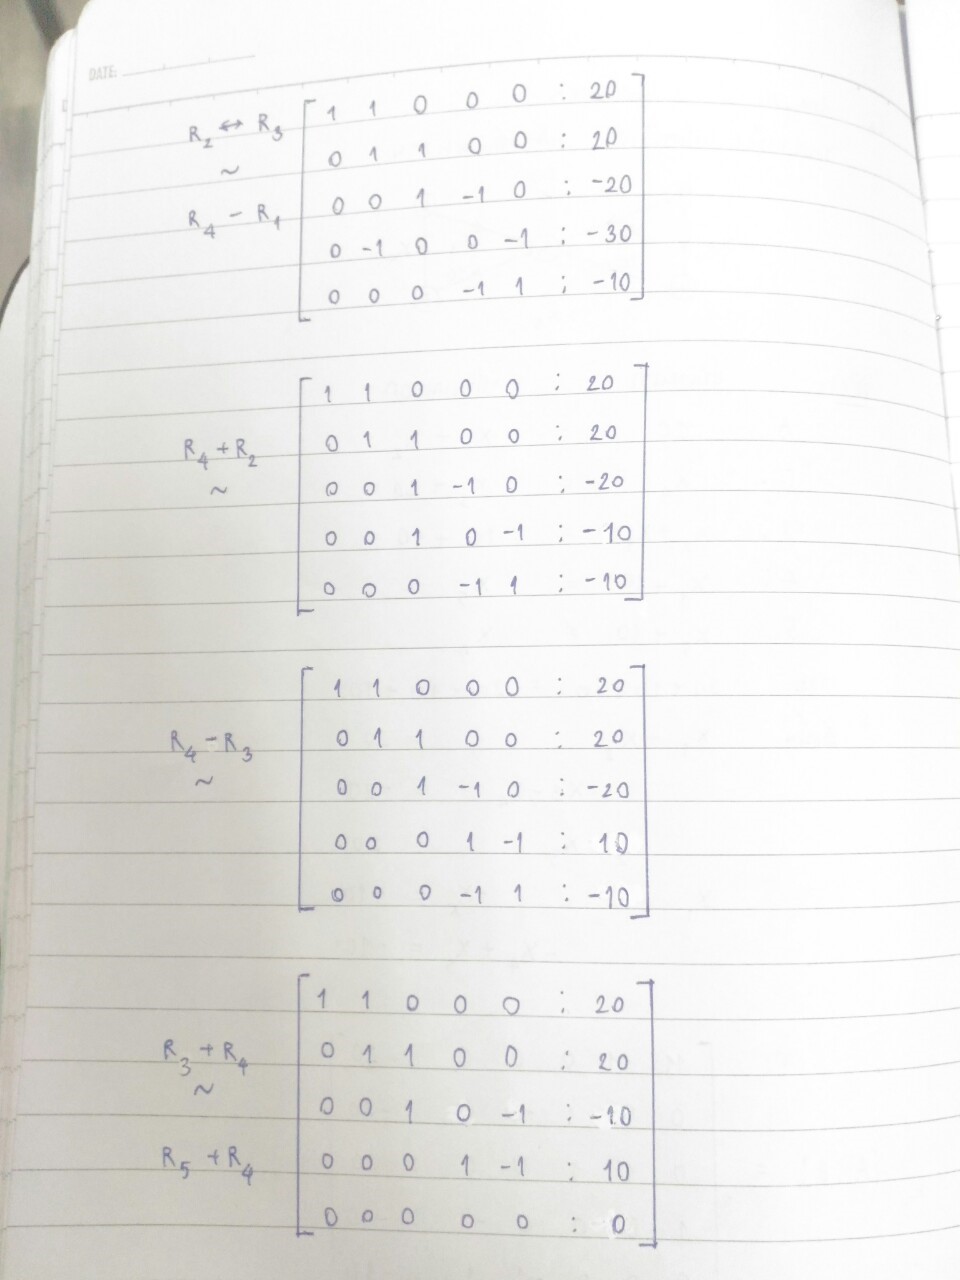 DATE:
R₂ ↔ R₃
~
R₄ - R₁
1 1 0 0 0 : 20
0 1 1 0 0 : 20
0 0 1 -1 0 : -20
0 -1 0 0 -1 : -30
0 0 0 -1 1 : -10
R₄ + R₂
~
1 1 0 0 0 : 20
0 1 1 0 0 : 20
0 0 1 -1 0 : -20
0 0 1 0 -1 : -10
0 0 0 -1 1 : -10
R₄ - R₃
~
1 1 0 0 0 : 20
0 1 1 0 0 : 20
0 0 1 -1 0 : -20
0 0 0 1 -1 : 10
0 0 0 -1 1 : -10
R₃ + R₄
~
R₅ + R₄
1 1 0 0 0 : 20
0 1 1 0 0 : 20
0 0 1 0 -1 : -10
0 0 0 1 -1 : 10
0 0 0 0 0 : 0